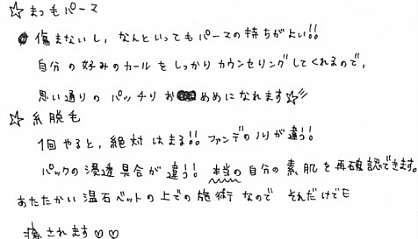 ☆まつ毛パーマ
傷まないし、なんといってもパーマの持ちがよい!!
自分の好みのカールをしっかりカウンセリングしてくれるので、
思い通りのパッチリおめめになれます☆彡
☆糸脱毛
1回やると、絶対はまる!!ファンデのノリが違う!!
パックの浸透具合が違う!!本当の自分の素肌を再確認できます。
あたたかい温石ベットの上での施術なので それだけでも
癒されます♡♡